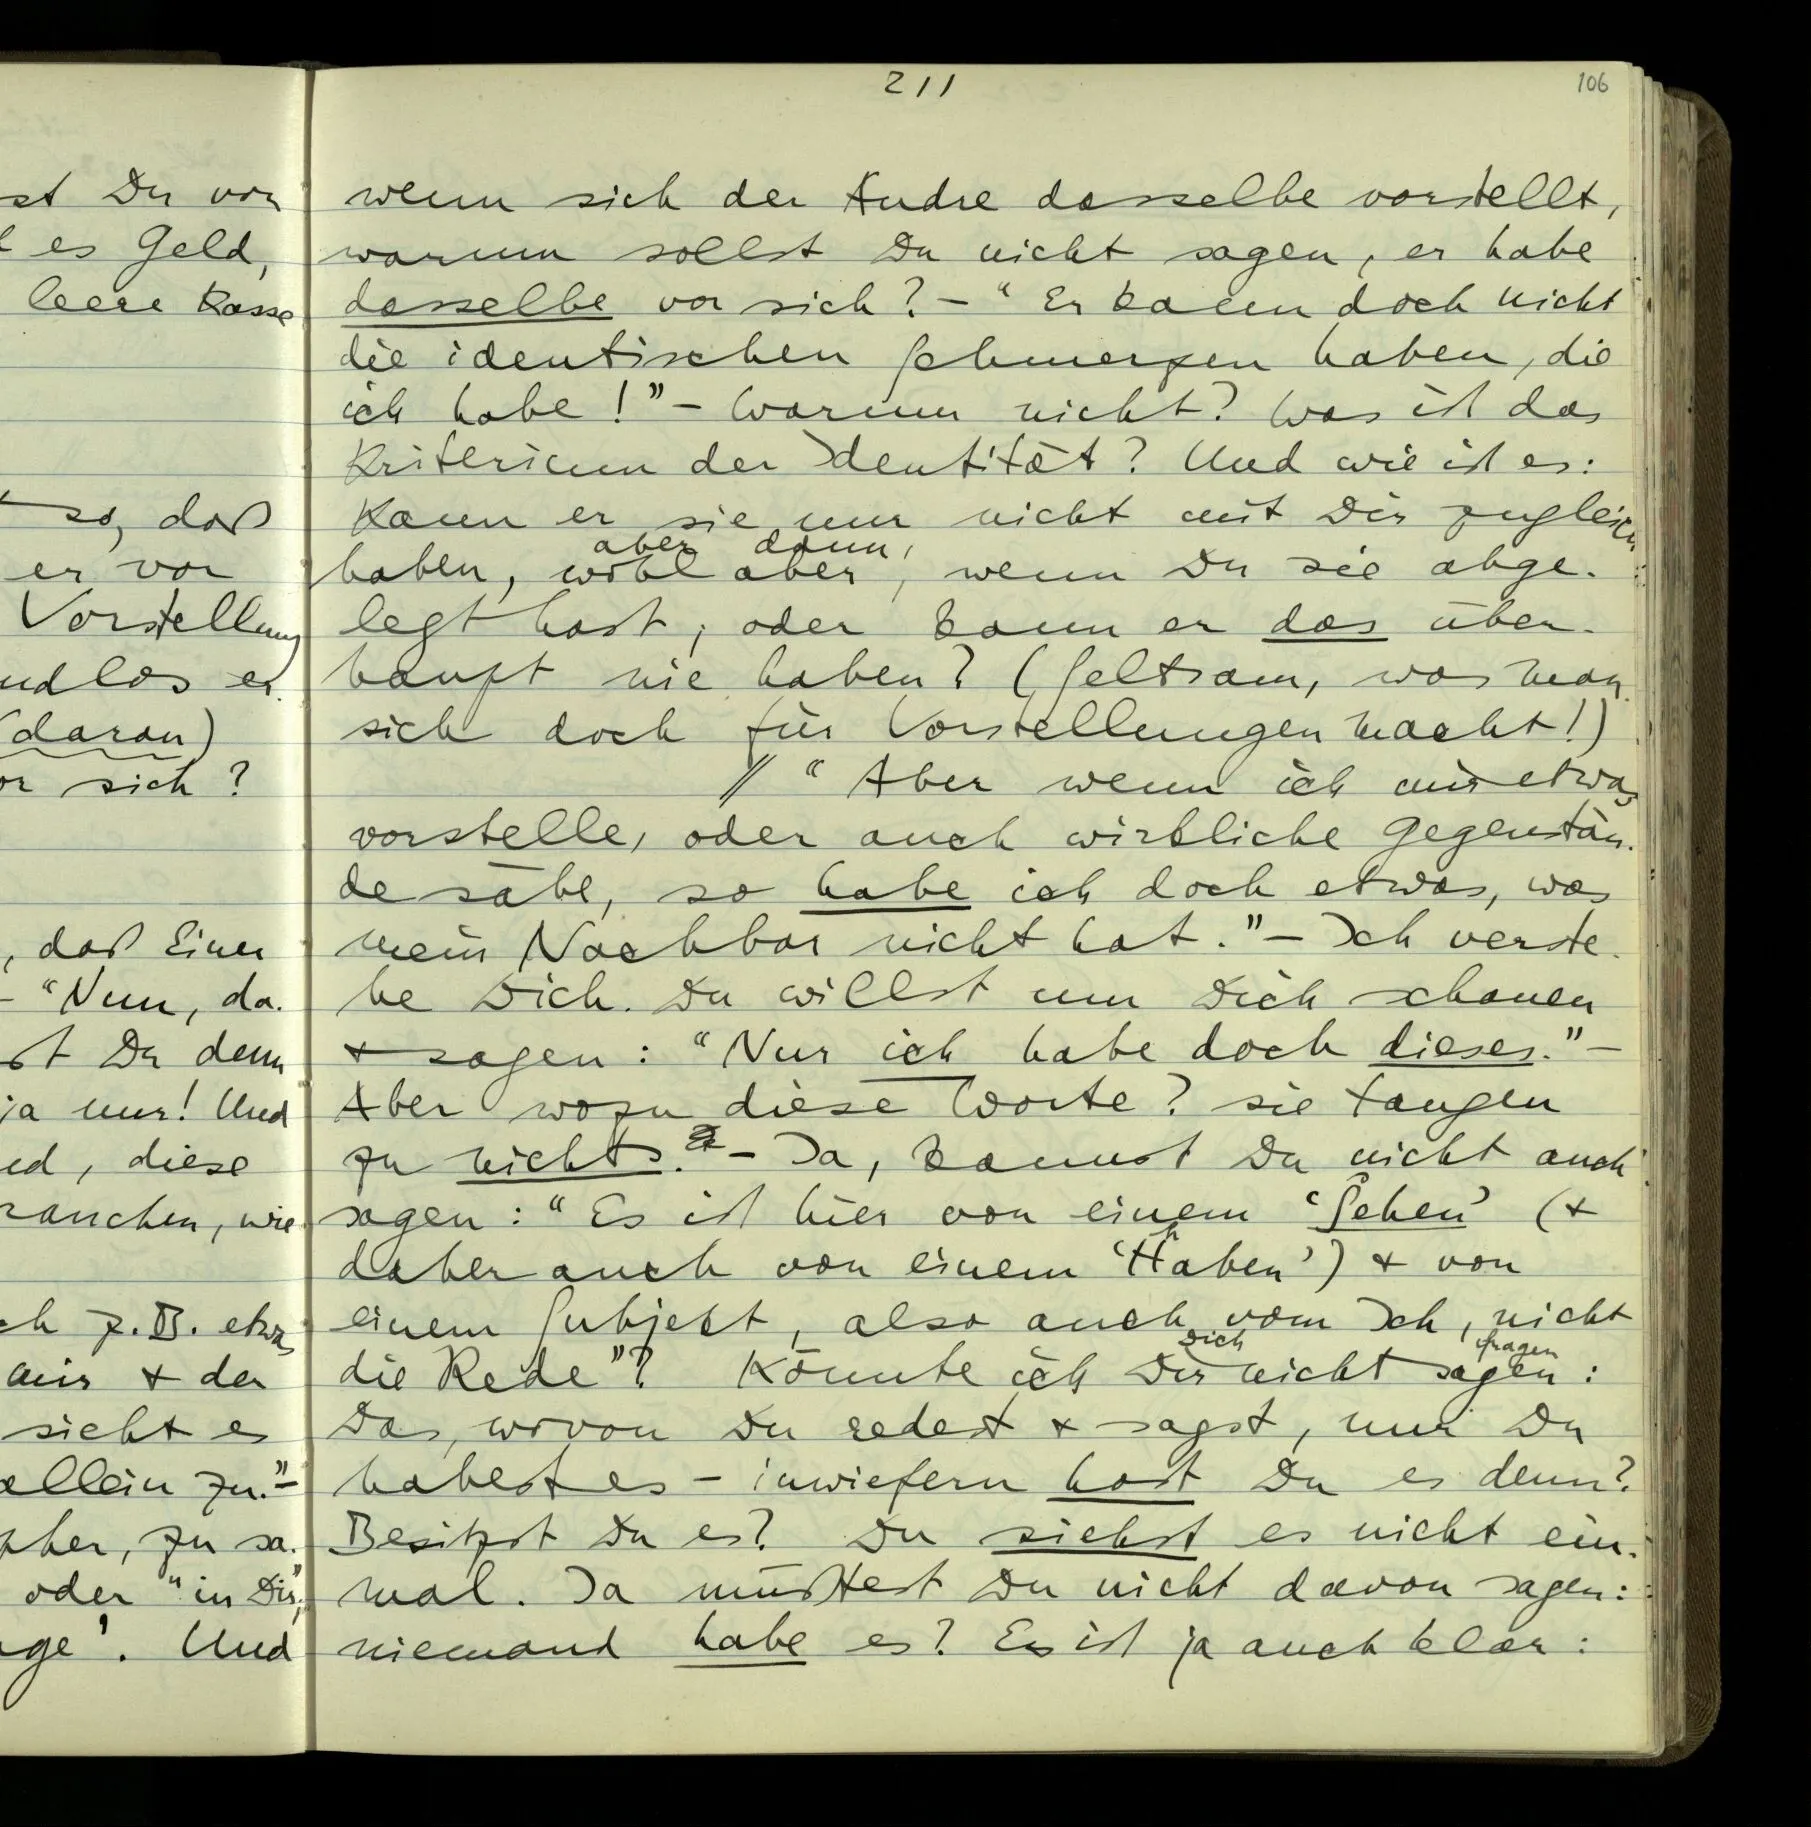 211
106
st Du von
t es Geld,
leere Kasse
so, daß
er vor
Vorstellung
ndlos er
(daran)
or sich?
, daß Einer
– “Nun, da.
st Du denn
ja nur! Und
nd, diese
rauchen, wie
ch z.B. etwa
mir & der
sieht es
allein zu.”–
pher, zu sa.
oder “in Dir”,
age'. Und
wenn sich der Andre dasselbe vorstellt,
warum sollst Du nicht sagen, er habe
dasselbe vor sich? – “Er kann doch nicht
die identischen Schmerzen haben, die
ich habe!” – Warum nicht? Was ist das
Kriterium der Identität? Und wie ist es:
Kann er sie nur nicht mit Dir zugleich
aber dann,
haben, wohl aber, wenn Du sie abge-
legt hast; oder kann er das über-
haupt nie haben? (Seltsam, was man
sich doch für Vorstellungen macht!)
// “Aber wenn ich mir etwas
vorstelle, oder auch wirkliche Gegenstän-
de sähe, so habe ich doch etwas, was
mein Nachbar nicht hat.” – Ich verste-
he Dich. Du willst um Dich schauen
& sagen: “Nur ich habe doch dieses.” –
Aber wozu diese Worte? sie taugen
zu nichts. – Ja, kannst Du nicht auch
sagen: “Es ist hier von einem ‘Sehen’ (&
daher auch von einem ‘Haben’) & von
einem Subjekt, also auch vom Ich, nicht
Dich fragen
die Rede”? Könnte ich Dir nicht sagen:
Das, wovon Du redest & sagst, nur Du
habest es – inwiefern hast Du es denn?
Besitzst Du es? Du siehst es nicht ein-
mal. Ja müßtest Du nicht davon sagen:
niemand habe es? Es ist ja auch klar: